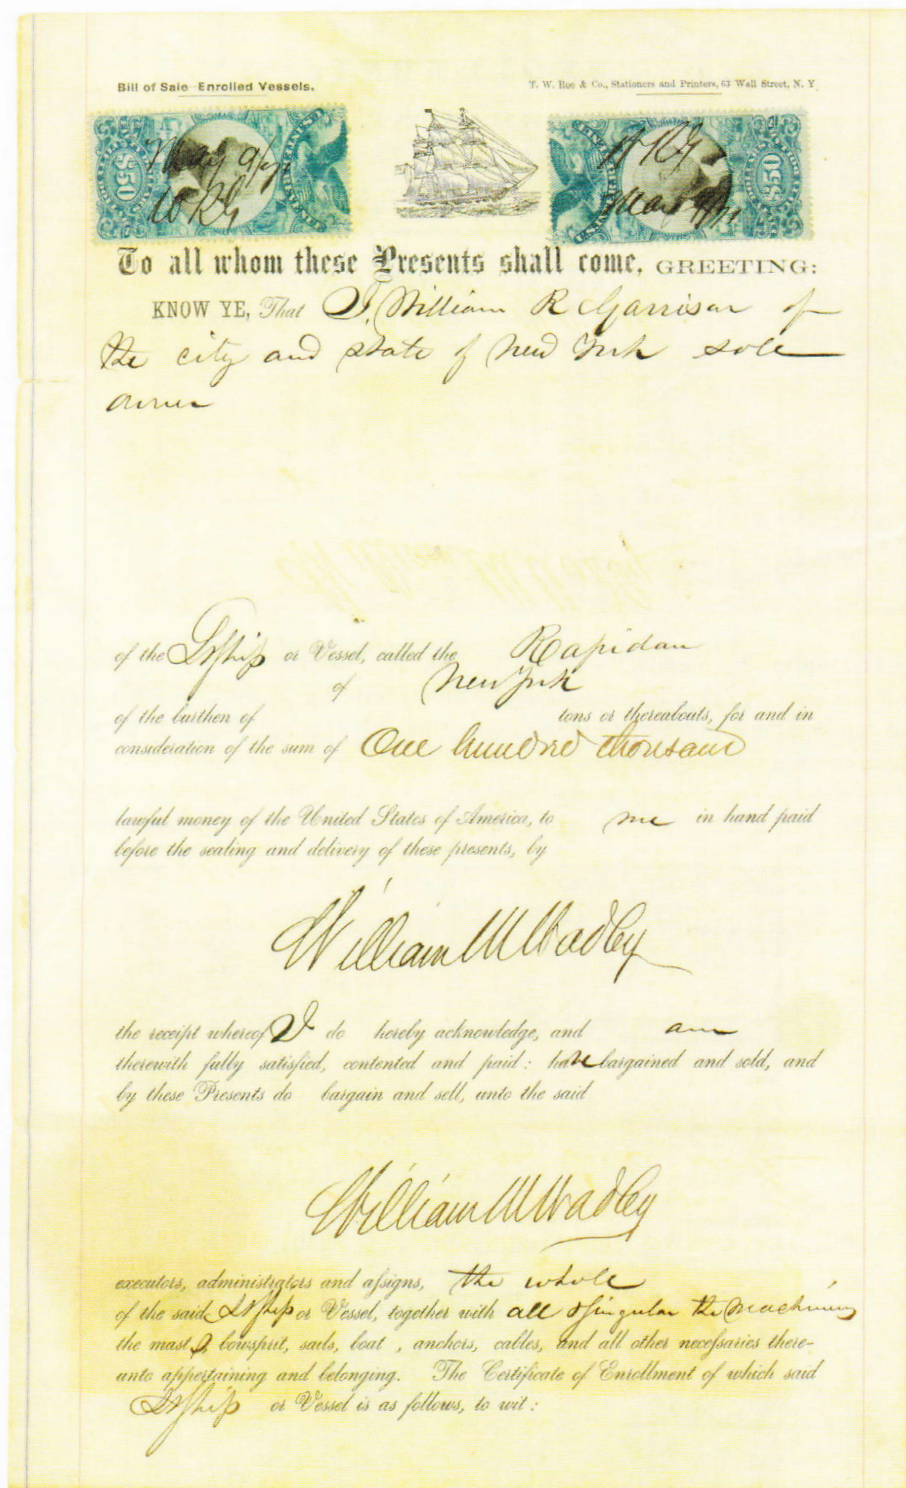 Bill of Sale Enrolled Vessels.
T. W. Roe & Co., Stationers and Printers, 63 Wall Street, N. Y
$50 May 9/71 WRG
$50 WRG May 9/71
To all whom these Presents shall come, GREETING:
KNOW YE, That I, William R Garrison of
the city and state of New York sole
owner
of the StShip or Vessel, called the Rapidan
of New York
of the burthen of tons or thereabouts, for and in
consideration of the sum of One hundred thousand
lawful money of the United States of America, to me in hand paid
before the sealing and delivery of these presents, by
William M Wadley
the receipt whereof I do hereby acknowledge, and am
therewith fully satisfied, contented and paid: have bargained and sold, and
by these Presents do bargain and sell, unto the said
William M Wadley
executors, administrators and assigns, the whole
of the said StShip or Vessel, together with all & singular the machinery
the masts, bowsprit, sails, boat , anchors, cables, and all other necessaries there-
unto appertaining and belonging. The Certificate of Enrollment of which said
StShip or Vessel is as follows, to wit: